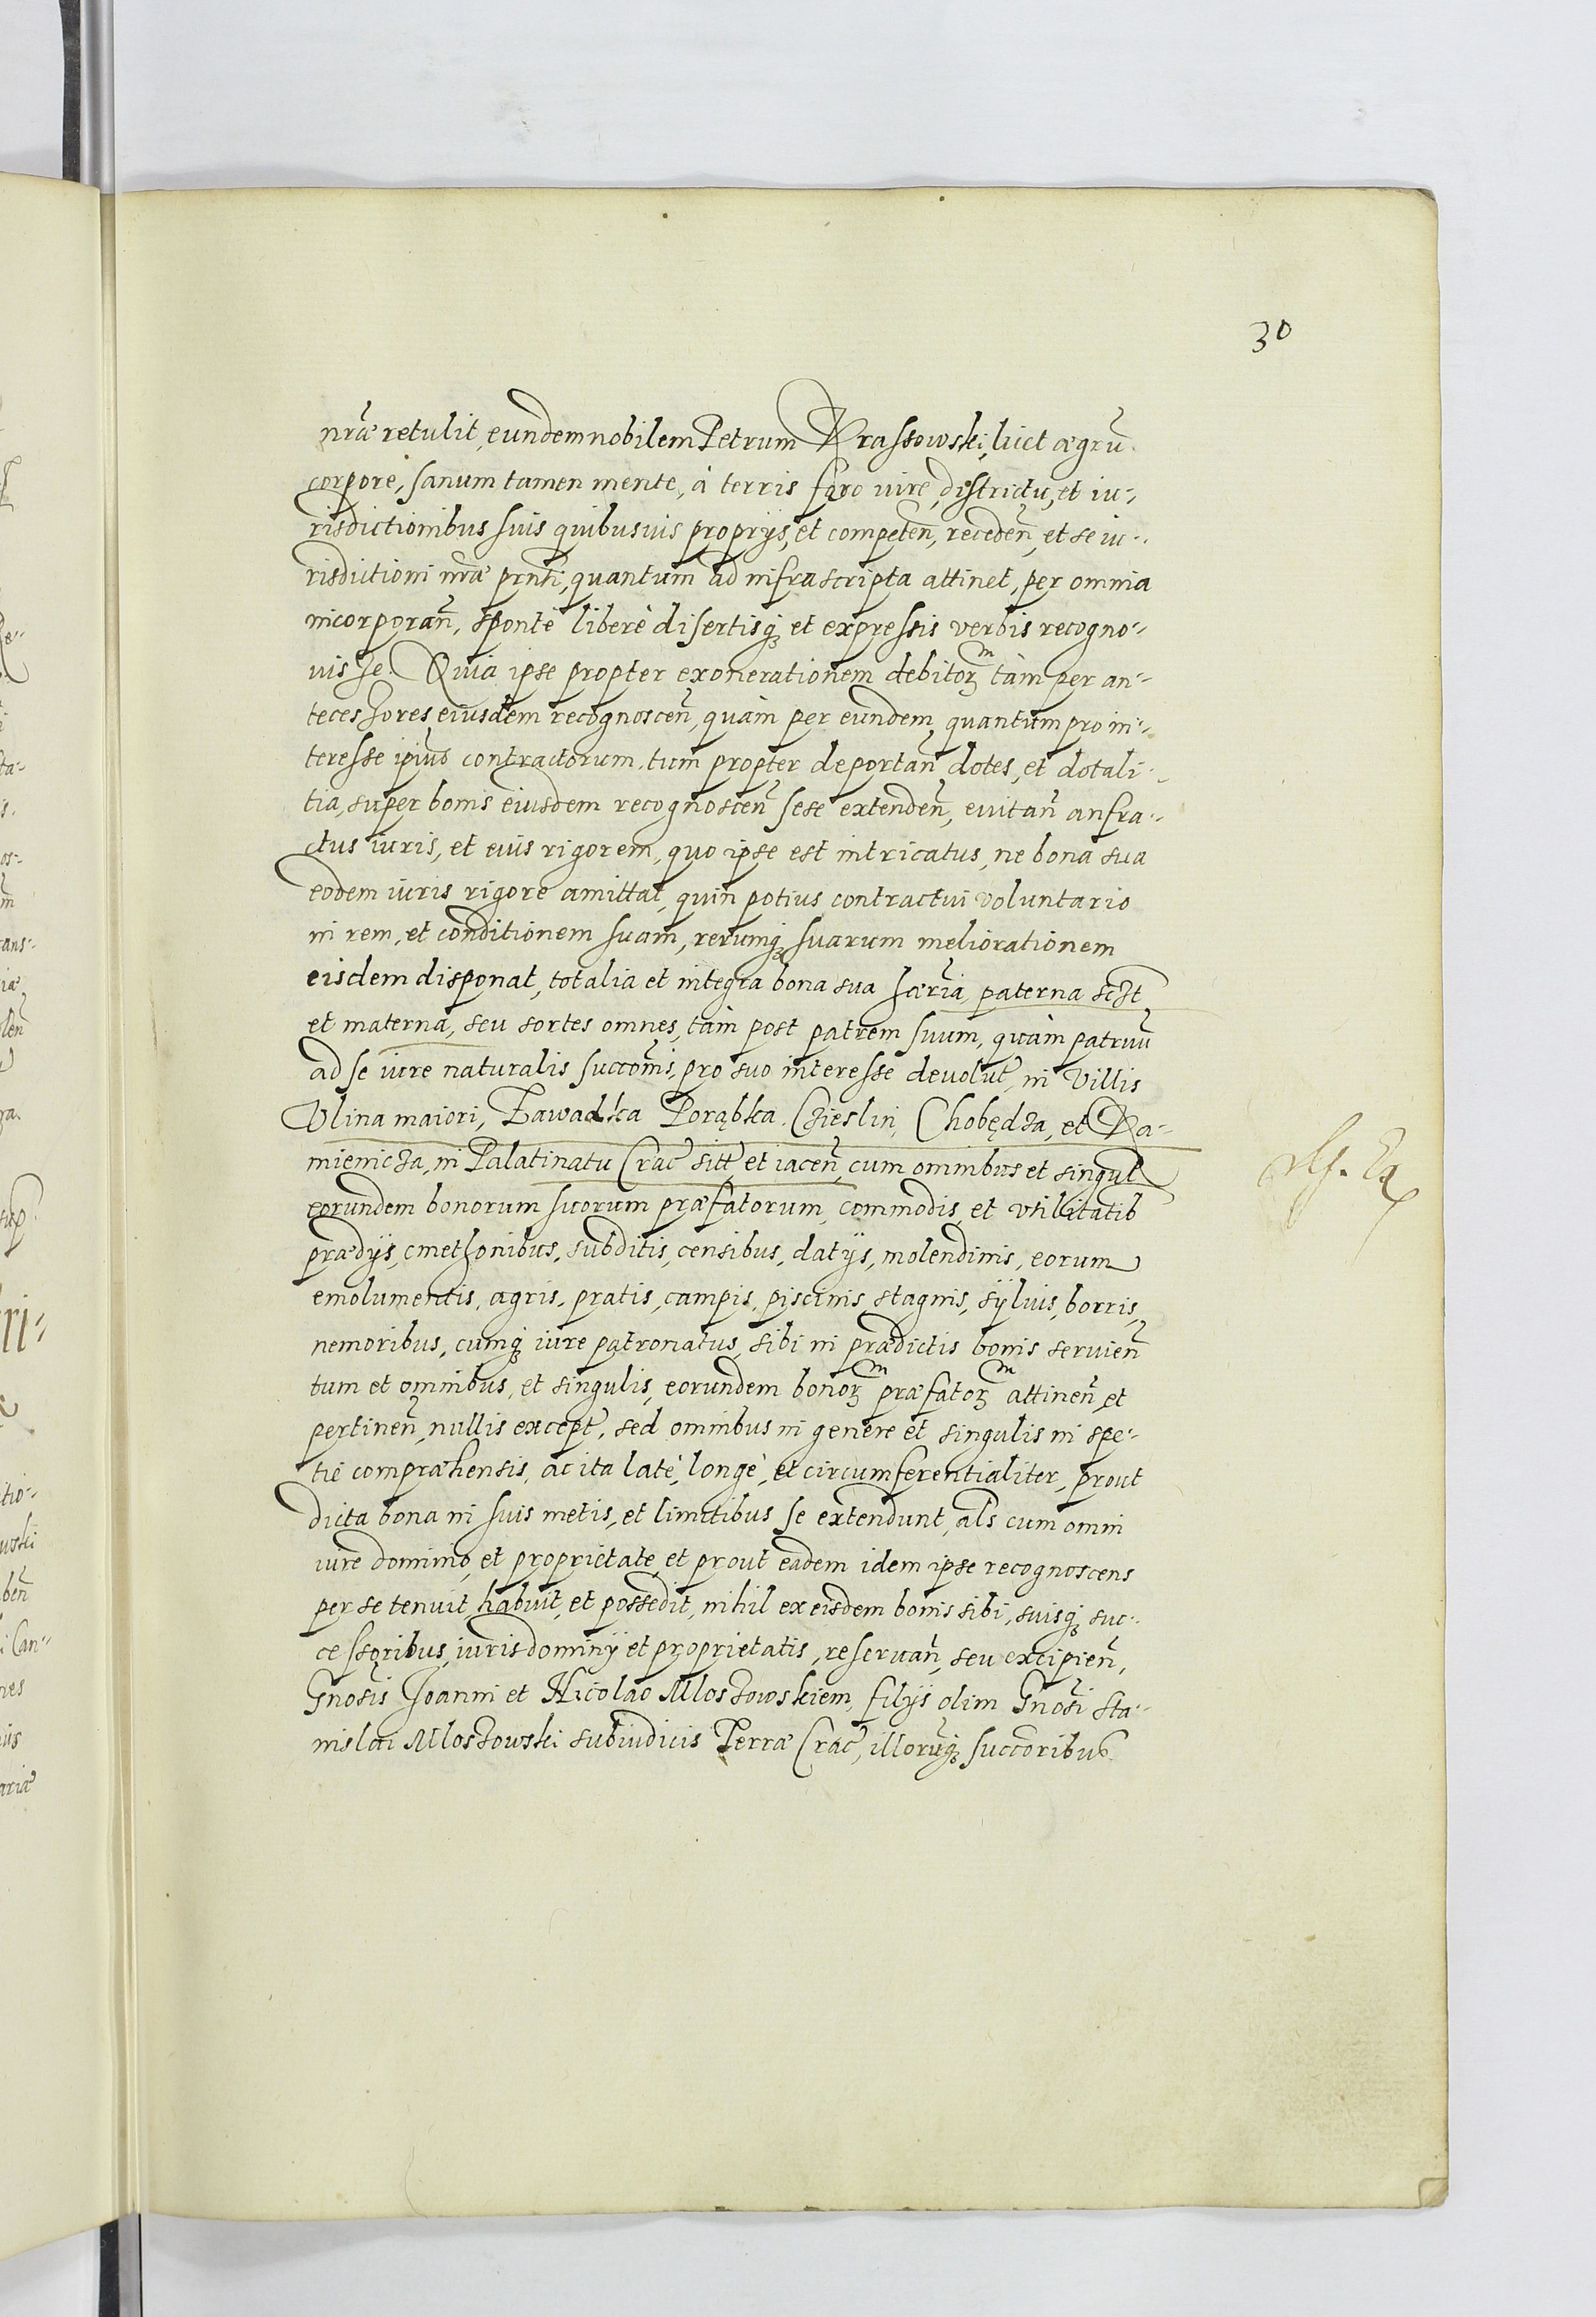 30
nr̃æ retulit, eundem nobilem Petrum Krassowski, licet ægrũ
corpore, sanum tamen mente, à terris foro iure, districtu, et iu-
risdictionibus suis quibusuis proprijs, et competeñ, recedeñ, et se iu-
risdictioni nr̃æ prñti, quantum ad infrascripta attinet, per omnia
incorporañ, sponte libere disertisq; et expressis verbis recogno-
uisse. Quia ipse propter exonerationem debitorum tàm per an-
tecessores eiusdem recognosceñ, quàm per eundem, quantum pro in-
teresse ipius contractorum, tum propter deportañ dotes, et dotali-
tia, super bonis eiusdem recognosceñ sese extendeñ, euitañ anfra-
ctus iuris, et eius rigorem, quo ipse est intricatus, ne bona sua
eodem iuris rigore amittat, quin potius contractui voluntario
in rem, et conditionem suam, rerumq; suarum meliorationem
eisdem disponat, totalia et integra bona sua hæria, paterna sczt
et materna, seu sortes omnes, tàm post patrem suum, quàm patruũ
ad se iure naturalis succonis, pro suo interesse deuolut, in Villis
Vlina maiori, Zawadka Porąbka, Czieslin, Chobędza, et Ka-
mienicza, in Palatinatu Crac sitt et iaceñ, cum omnibus et singul
eorundem bonorum suorum præfatorum, commodis, et vtilitatib
prædijs, cmethonibus, subditis, censibus, datijs, molendinis, eorum
emolumentis, agris, pratis, campis, piscinis, stagnis, syluis, borris,
nemoribus, cumq; iure patronatus, sibi in prædictis bonis seruieñ
tum et omnibus, et singulis, eorundem bonorum præfatorum attineñ, et
pertineñ, nullis except, sed omnibus in genere et singulis in spe-
tie compræhensis, ac ita late, longe, et circumferentialiter, prout
dicta bona in suis metis, et limitibus se extendunt, als cum omni
iure dominio, et proprietate, et prout eadem idem ipse recognoscens
per se tenuit, habuit, et possedit, nihil ex eisdem bonis sibi, suisq; suc-
cessoribus, iuris dominij et proprietatis, reseruañ, seu excipieñ,
Gnosis Joanni et Nicolao Mloszowskiem, filijs olim Gnosi Sta-
nislai Mloszowski subiudicis Terræ Crac, illorũq; succoribus